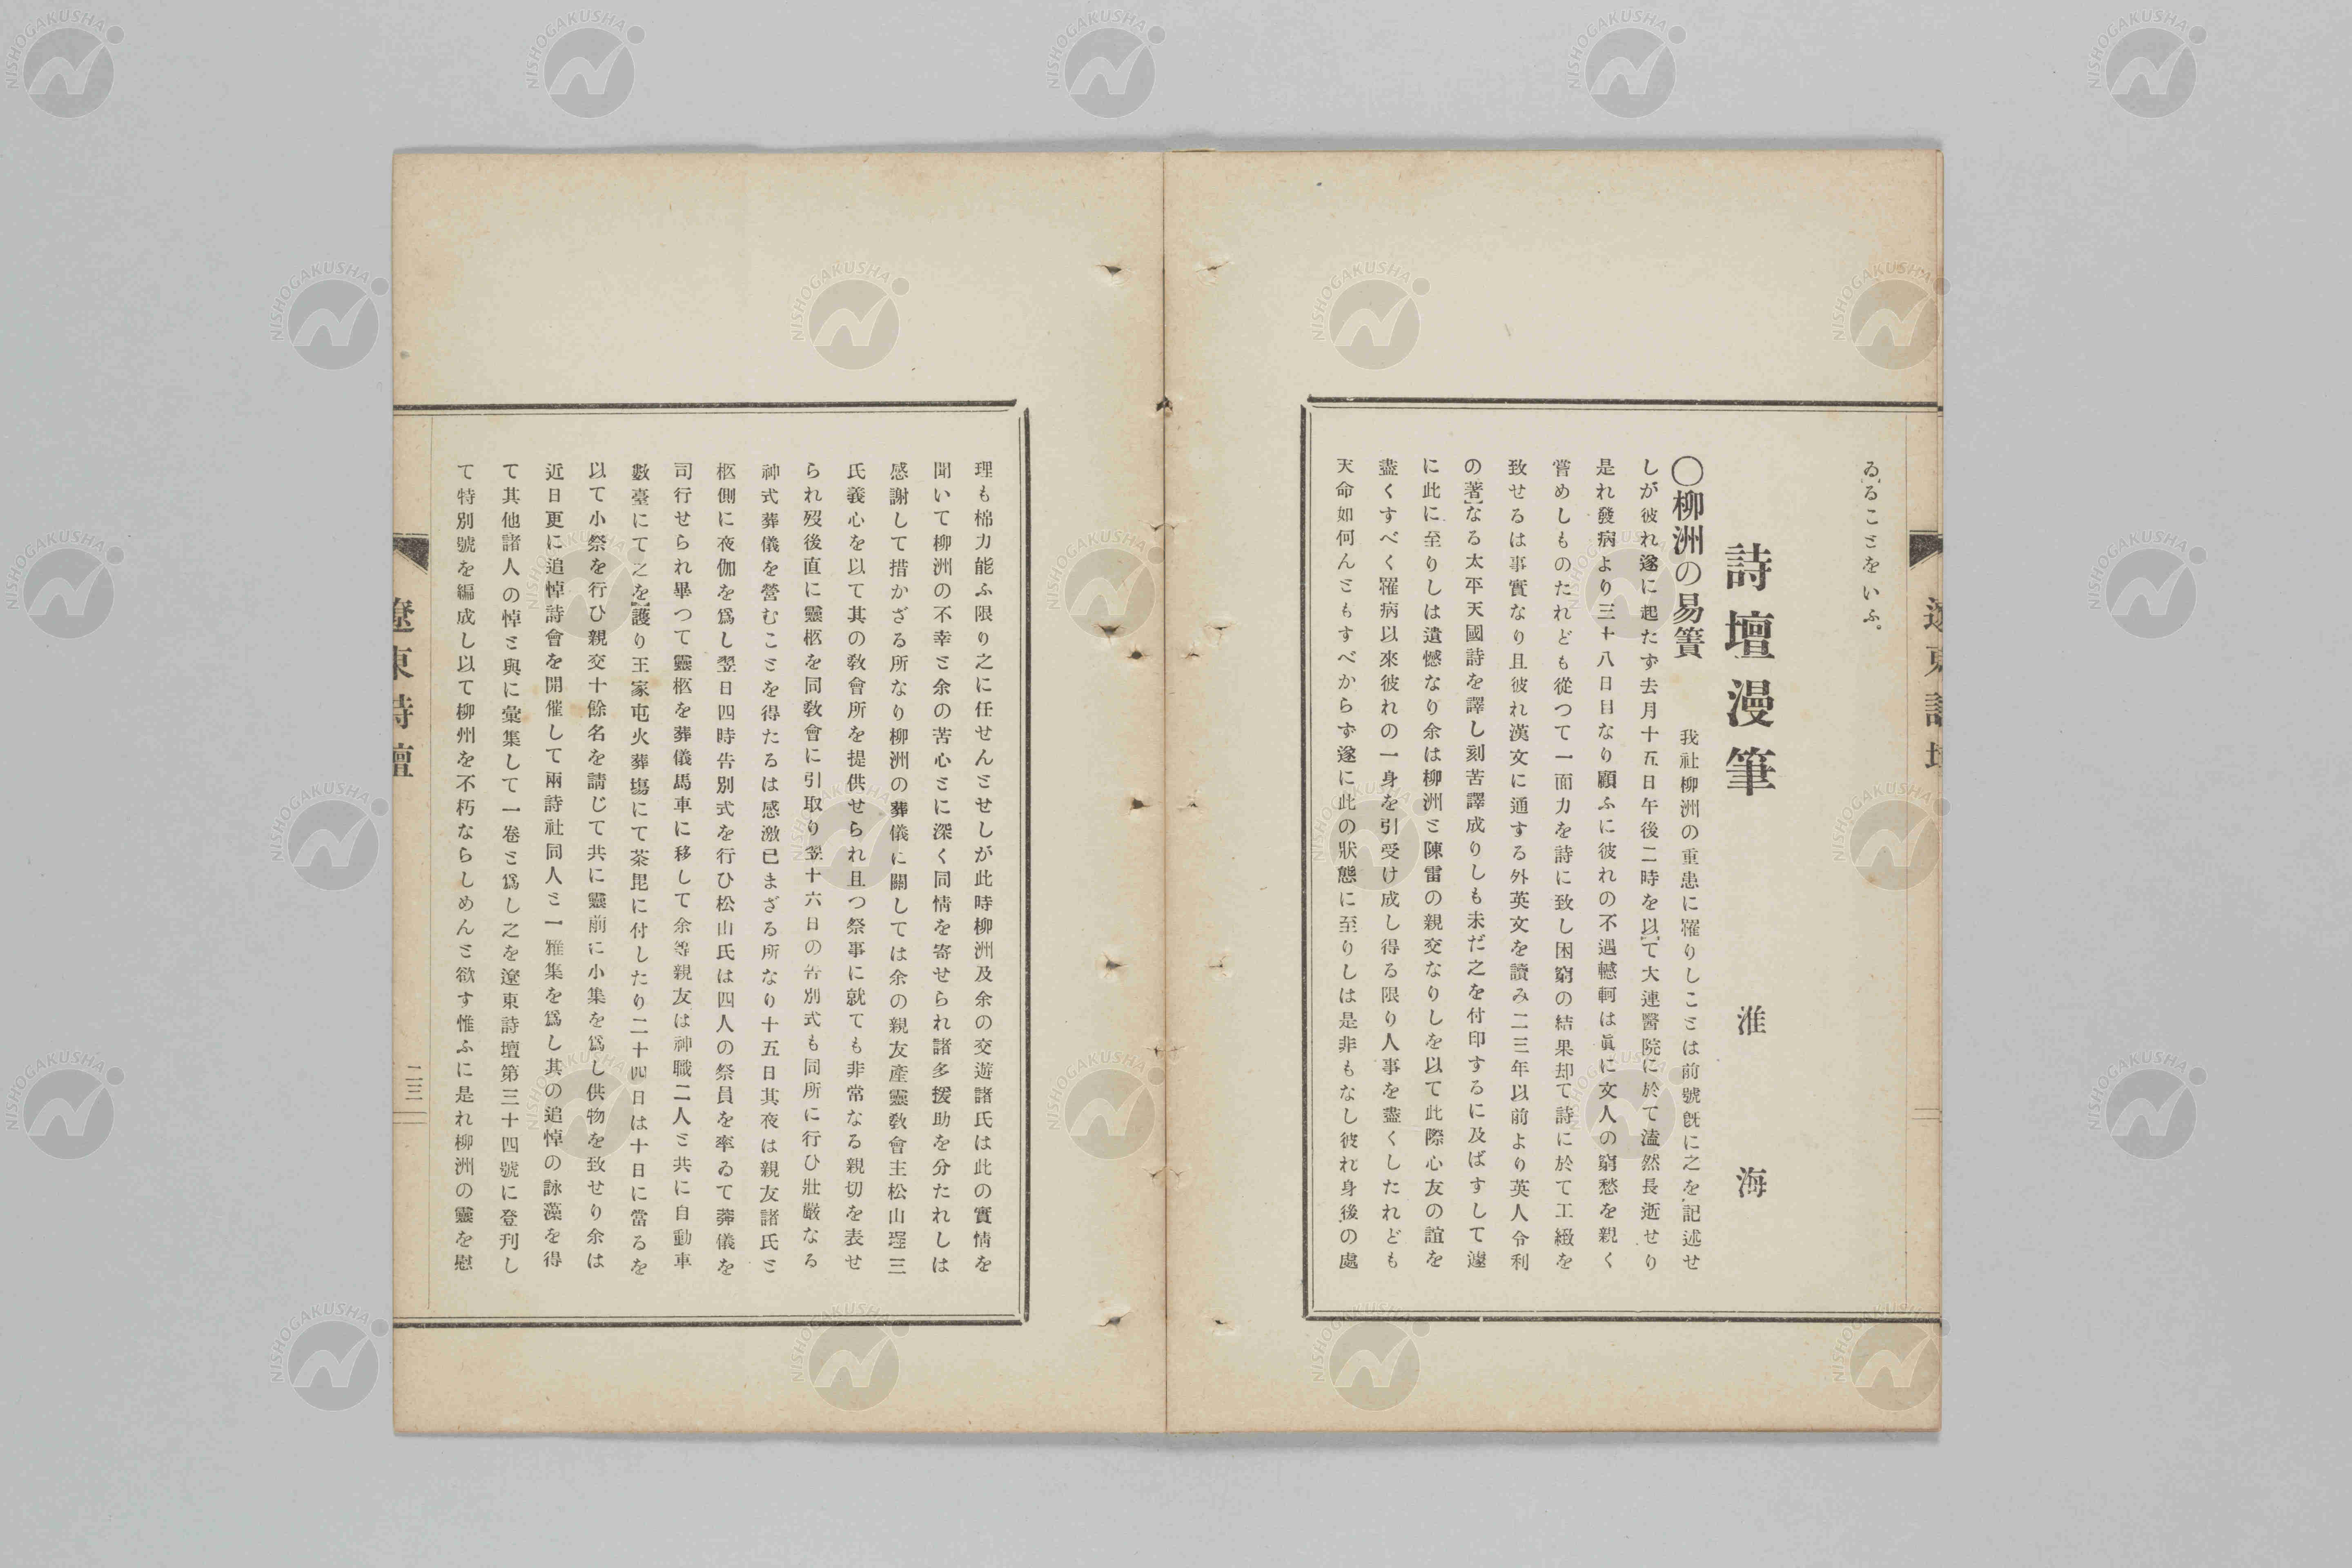 ゐることをいふ。
詩壇漫筆　淮海
〇柳洲の易簀　我社柳洲の重患に罹りしことは前號既に之を記述せ
しが彼れ遂に起たず去月十五日午後二時を以て大連醫院に於て溘然長逝せり
是れ發病より三十八日目なり顧ふに彼れの不遇轗軻は眞に文人の窮愁を親く
嘗めしものたれども從つて一面力を詩に致し困窮の結果却て詩に於て工緻を
致せるは事實なり且彼れ漢文に通する外英文を讀み二三年以前より英人令利
の著なる太平天國詩を譯し刻苦譯成りしも未だ之を付印するに及ばすして遽
に此に至りしは遺憾なり余は柳洲と陳雷の親交なりしを以て此際心友の誼を
盡くすべく罹病以來彼れの一身を引受け成し得る限り人事を盡くしたれども
天命如何んともすべからず遂に此の狀態に至りしは是非もなし彼れ身後の處
理も棉力能ふ限り之に任せんとせしが此時柳洲及余の交遊諸氏は此の實情を
聞いて柳洲の不幸と余の苦心とに深く同情を寄せられ諸多援助を分たれしは
感謝して措かざる所なり柳洲の葬儀に關しては余の親友產靈敎會主松山珵三
氏義心を以て其の敎會所を提供せられ且つ祭事に就ても非常なる親切を表せ
られ歿後直に靈柩を同敎會に引取り翌十六日の告別式も同所に行ひ壯嚴なる
神式葬儀を營むことを得たるは感激已まざる所なり十五日其夜は親友諸氏と
柩側に夜伽を爲し翌日四時告別式を行ひ松山氏は四人の祭員を率ゐて葬儀を
司行せられ畢つて靈柩を葬儀馬車に移して余等親友は神職二人と共に自動車
數臺にて之を護り王家屯火葬場にて茶毘に付したり二十四日は十日に當るを
以て小祭を行ひ親交十餘名を請じて共に靈前に小集を爲し供物を致せり余は
近日更に追悼詩會を開催して兩詩社同人と一雅集を爲し其の追悼の詠藻を得
て其他諸人の悼と與に彙集して一卷と爲し之を遼東詩壇第三十四號に登刊し
て特別號を編成し以て柳州を不朽ならしめんと欲す惟ふに是れ柳洲の靈を慰
遼東詩壇
二三
NISHOGAKUSHA